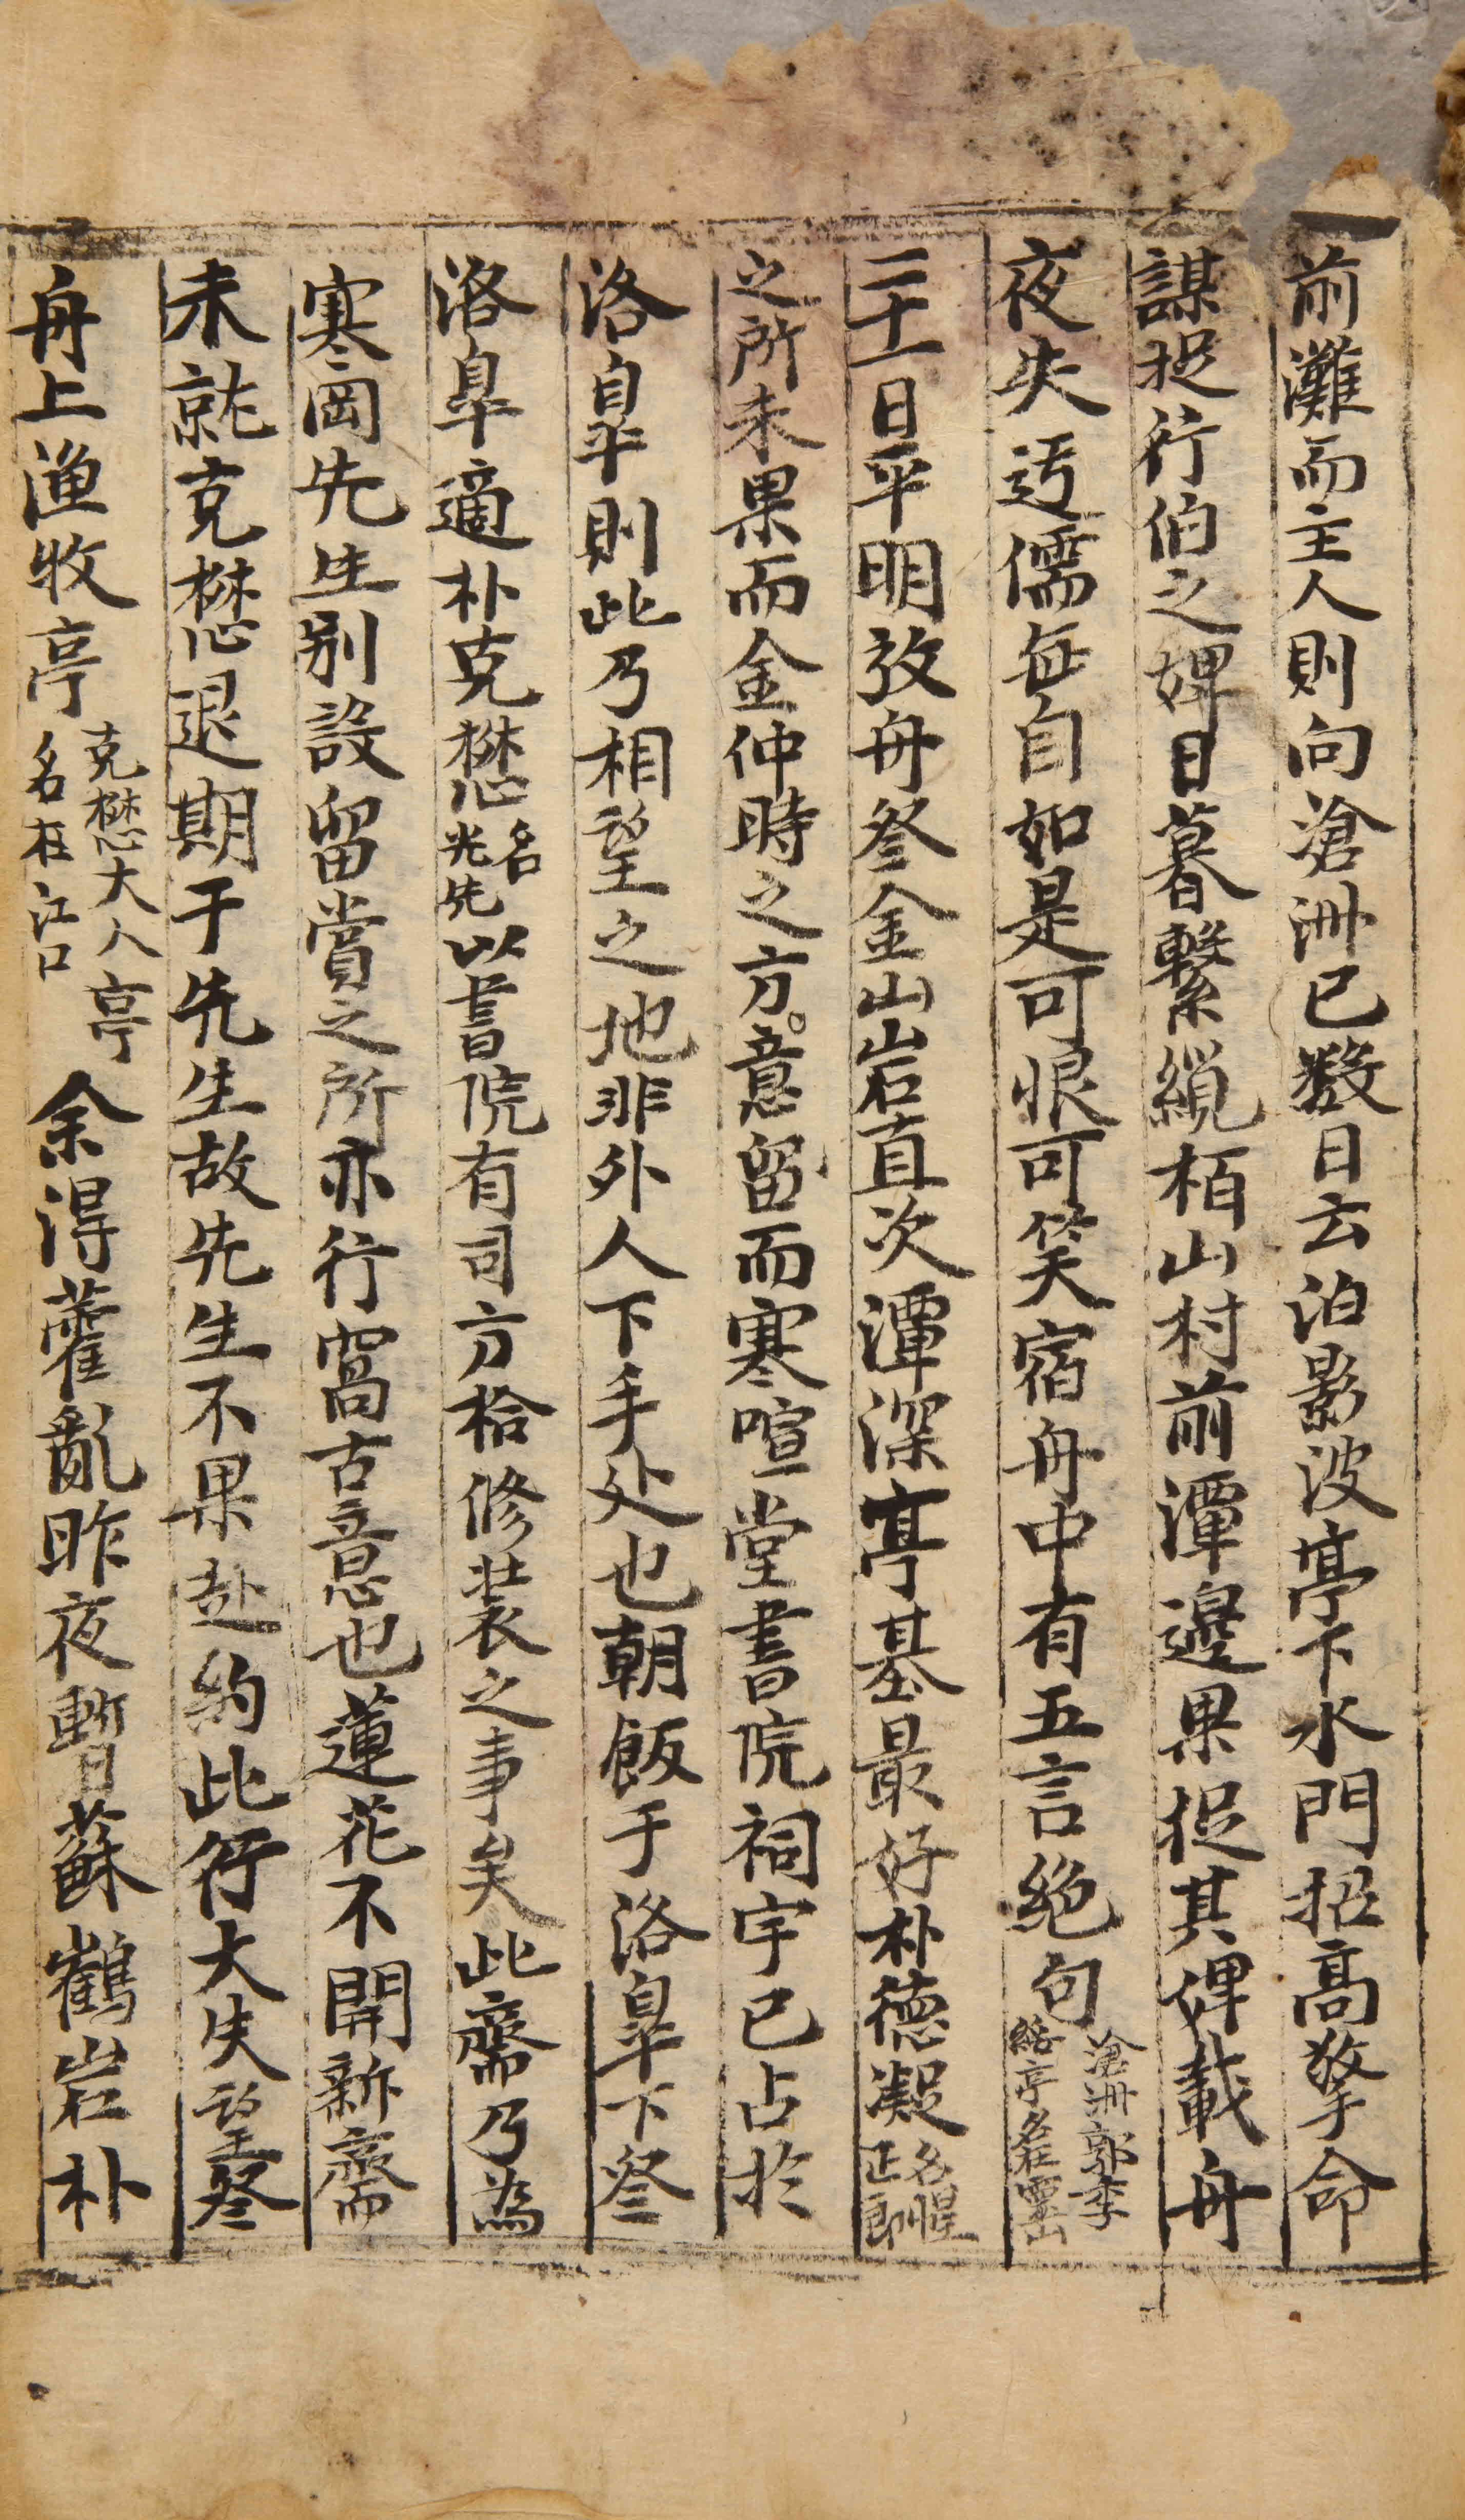 前灘而主人則向滄洲已数日云泊影波亭下水門招高擎命
謀捉行伯之婢日暮繫纜栢山村前潭邊果捉其婢載舟
夜失迃儒每自如是可恨可笑宿舟中有五言絶句滄洲郭李緒亭名在霊山
二十一日平明放舟叅金山岩直次潭深亭基最好朴德凝名惺正郎
之所未果而金仲時之方意留而寒喧堂書院祠宇已占於
洛皐則此乃相望之地非外人下手处也朝飯于洛皐下叅
洛皐適朴克懋名光先以書院有司方拾修装之事矣此齋乃為
寒岡先生别設留賞之所亦行窩古意也蓮花不開新齋
未就克懋退期于先生故先生不果赴約此行大失望叅
舟上渔牧亭克懋大人亭名在江口余得藿亂昨夜暫蘇鶴岩朴